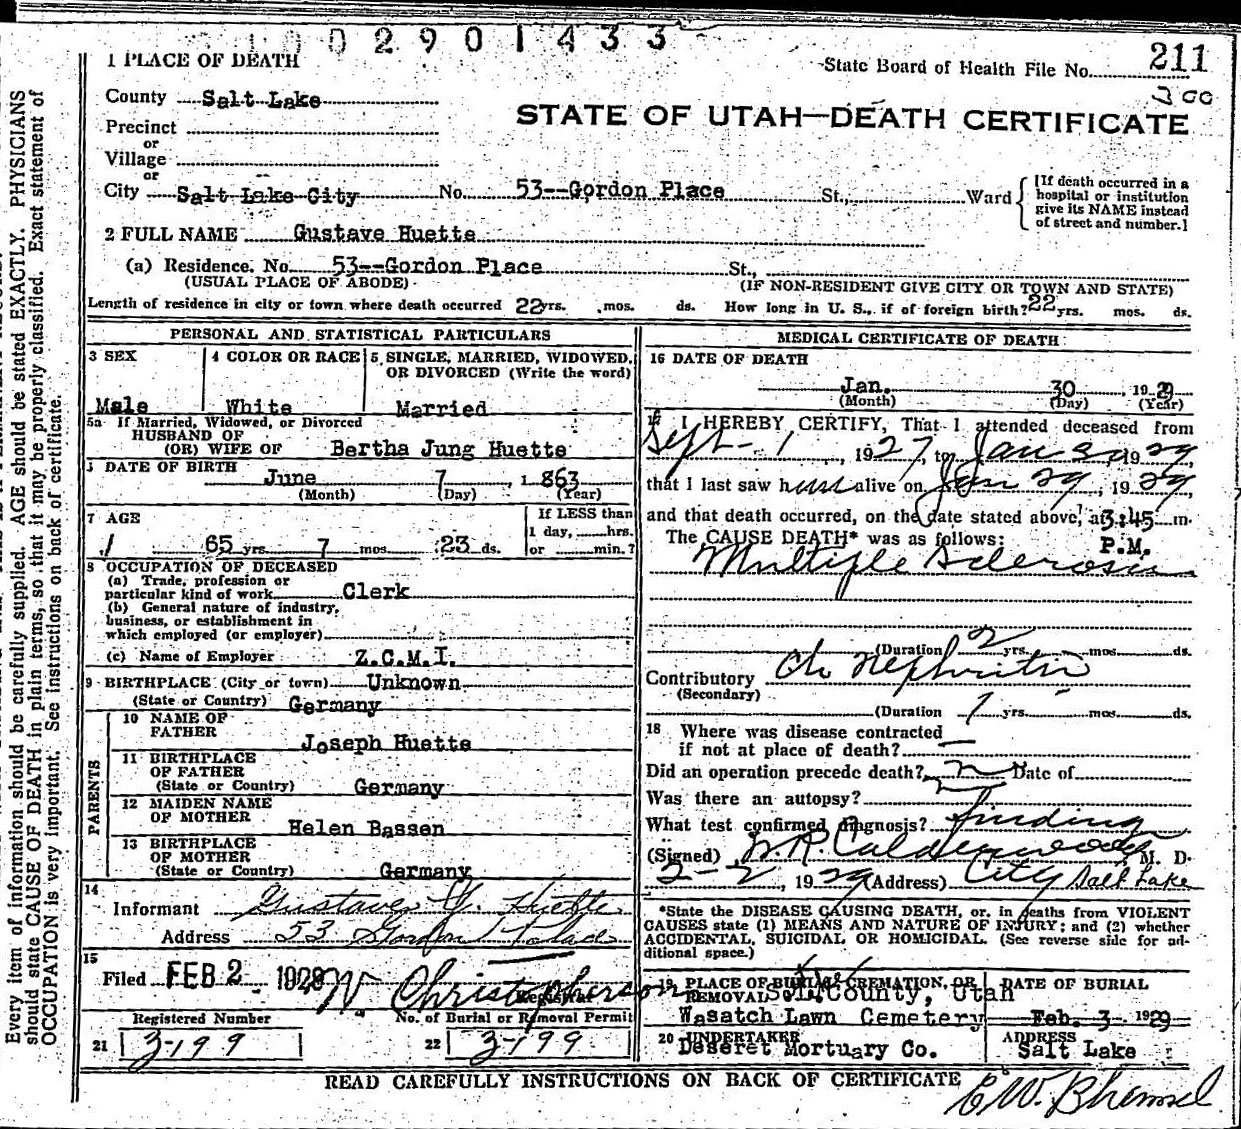 1002901433
1 PLACE OF DEATH
State Board of Health File No. 211
300
County Salt Lake
STATE OF UTAH—DEATH CERTIFICATE
Precinct
or
Village
or
City Salt Lake City No. 53--Gordon Place St., Ward
[If death occurred in a
hospital or institution
give its NAME instead
of street and number.]
2 FULL NAME Gustave Huette
(a) Residence. No. 53--Gordon Place St.,
(USUAL PLACE OF ABODE) (IF NON-RESIDENT GIVE CITY OR TOWN AND STATE)
Length of residence in city or town where death occurred 22 yrs. mos. ds. How long in U. S., if of foreign birth? 22 yrs. mos. ds.
PERSONAL AND STATISTICAL PARTICULARS
3 SEX
Male
4 COLOR OR RACE
White
5 SINGLE, MARRIED, WIDOWED,
OR DIVORCED (Write the word)
Married
5a If Married, Widowed, or Divorced
HUSBAND OF
(OR) WIFE OF Bertha Jung Huette
DATE OF BIRTH
June 7, 1863
(Month) (Day) (Year)
7 AGE
65 yrs. 7 mos. 23 ds.
If LESS than
1 day, hrs.
or min.?
8 OCCUPATION OF DECEASED
(a) Trade, profession or
particular kind of work Clerk
(b) General nature of industry,
business, or establishment in
which employed (or employer)
(c) Name of Employer Z.C.M.I.
9 BIRTHPLACE (City or town) Unknown
(State or Country) Germany
PARENTS
10 NAME OF
FATHER
Joseph Huette
11 BIRTHPLACE
OF FATHER
(State or Country) Germany
12 MAIDEN NAME
OF MOTHER
Helen Bassen
13 BIRTHPLACE
OF MOTHER
(State or Country) Germany
14
Informant Gustave Huette
Address 53 Gordon Place
15
Filed FEB 2, 1929 W Christopherson
Registrar
Registered Number
21 3-199
No. of Burial or Removal Permit
22 3-199
MEDICAL CERTIFICATE OF DEATH
16 DATE OF DEATH
Jan. 30, 1929
(Month) (Day) (Year)
I HEREBY CERTIFY, That I attended deceased from
Sept - 1, 1927, to Jan 30, 1929,
that I last saw him alive on Jan 29, 1929,
and that death occurred, on the date stated above, at 3:45 m.
P.M.
The CAUSE DEATH* was as follows:
Multiple Sclerosis
(Duration 2 yrs. mos. ds.
Contributory Ch Nephritis
(Secondary)
(Duration 1 yrs. mos. ds.
18 Where was disease contracted
if not at place of death?
Did an operation precede death? Date of
Was there an autopsy?
What test confirmed diagnosis? finding
(Signed) Calderwood, M. D.
2-2, 1929 (Address) City Salt Lake
*State the DISEASE CAUSING DEATH, or, in deaths from VIOLENT
CAUSES state (1) MEANS AND NATURE OF INJURY; and (2) whether
ACCIDENTAL, SUICIDAL OR HOMICIDAL. (See reverse side for ad-
ditional space.)
19 PLACE OF BURIAL, CREMATION, OR
REMOVAL S.L. County, Utah
Wasatch Lawn Cemetery
DATE OF BURIAL
Feb. 3 1929
20 UNDERTAKER
Deseret Mortuary Co.
ADDRESS
Salt Lake
READ CAREFULLY INSTRUCTIONS ON BACK OF CERTIFICATE
Every item of information should be carefully supplied. AGE should be stated EXACTLY. PHYSICIANS
should state CAUSE OF DEATH in plain terms, so that it may be properly classified. Exact statement of
OCCUPATION is very important. See instructions on back of certificate.